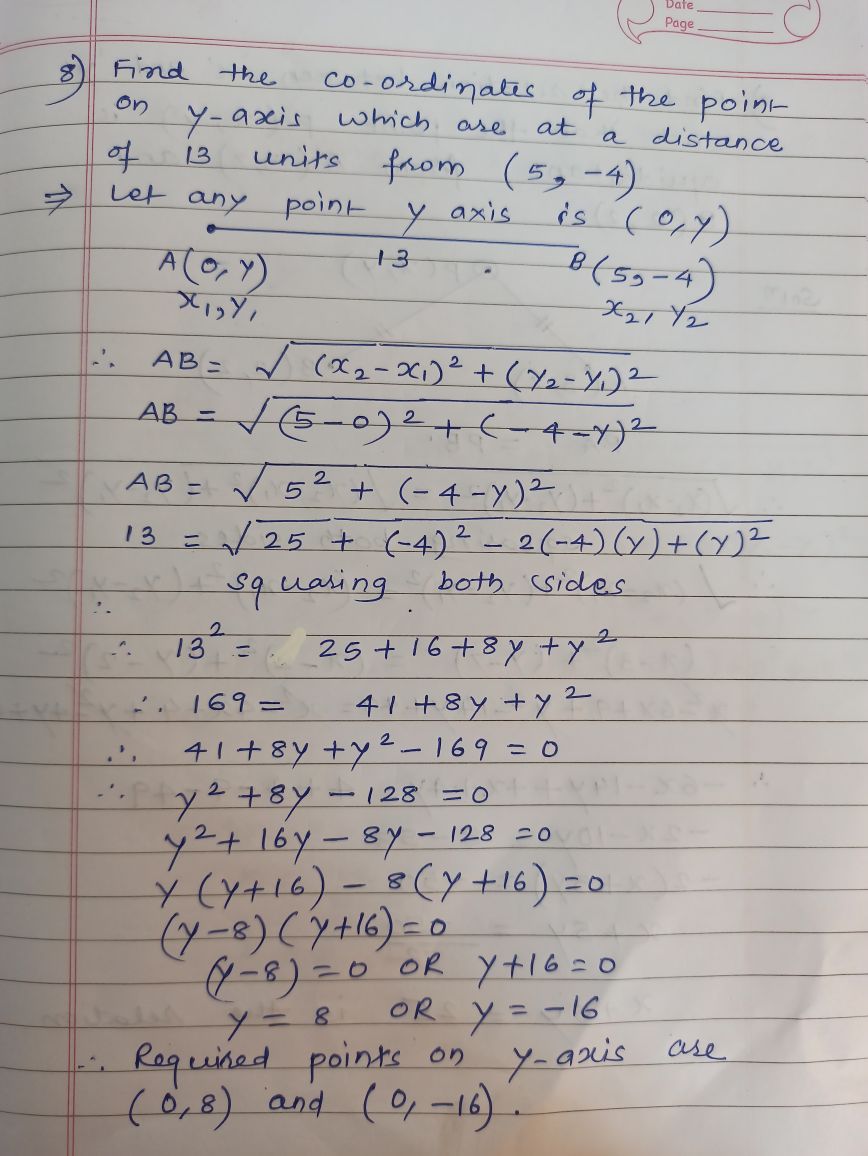 Date
Page
8) Find the co-ordinates of the point
on y-axis which are at a distance
of 13 units from (5, -4)
⇒ Let any point y axis is (0, y)
13
A(0, y) B(5, -4)
x₁, y₁ x₂, y₂
∴ AB = √((x₂ - x₁)² + (y₂ - y₁)²)
AB = √((5 - 0)² + (-4 - y)²)
AB = √(5² + (-4 - y)²)
13 = √(25 + (-4)² - 2(-4)(y) + (y)²)
∴ squaring both sides
∴ 13² = 25 + 16 + 8y + y²
∴ 169 = 41 + 8y + y²
∴ 41 + 8y + y² - 169 = 0
∴ y² + 8y - 128 = 0
y² + 16y - 8y - 128 = 0
y(y + 16) - 8(y + 16) = 0
(y - 8)(y + 16) = 0
(y - 8) = 0 OR y + 16 = 0
y = 8 OR y = -16
∴ Required points on y-axis are
(0, 8) and (0, -16).